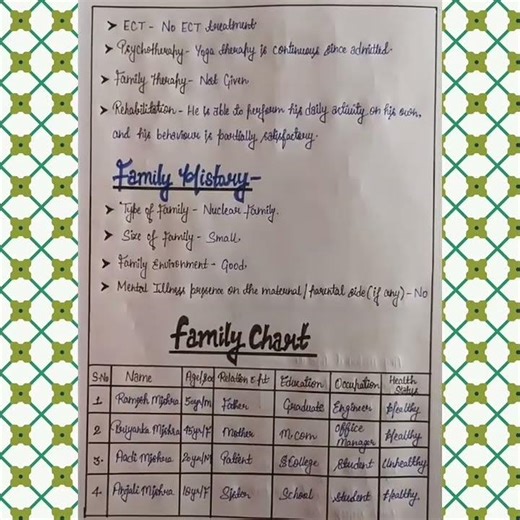 ➤ ECT - No ECT treatment
➤ Psychotherapy - Yoga therapy is continuous since admitted.
➤ Family Therapy - Not Given
➤ Rehabilitation - He is able to perform his daily activity on his own.
and his behaviour is partially satisfactory.
Family History-
➤ Type of Family - Nuclear family.
➤ Size of Family - Small.
➤ Family Environment - Good.
➤ Mental Illness presence on the maternal/parental side (if any) - No
Family Chart
S.No Name Age/Sex Relation Education Occupation Health Status
1. Ramesh Mishra Father Graduate Engineer Healthy
2 Priyanka Mishra Mother M.com Office Manager Healthy
3. Aadi Mishra Patient College Student Unhealthy
4. Anjali Mishra 18yr/F Sister School Student Healthy.